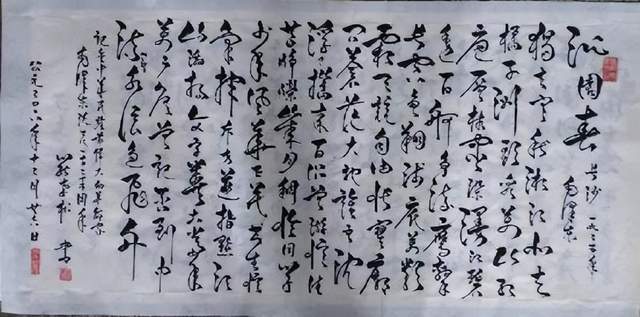 沁园春 长沙 一九二五年
毛泽东
独立寒秋湘江北去
橘子洲头看万山红
遍层林尽染漫江碧
透百舸争流鹰击
长空鱼翔浅底万类
霜天竞自由怅寥廓
问苍茫大地谁主沉
浮携来百侣曾游忆往
昔峥嵘岁月稠恰同学
少年风华正茂书生意
气挥斥方遒指点江
山激扬文字粪土当年
万户侯曾记否到中
流击水浪遏飞舟
毛泽东诞辰一百二十三周年
公元二〇一六年十二月廿六日